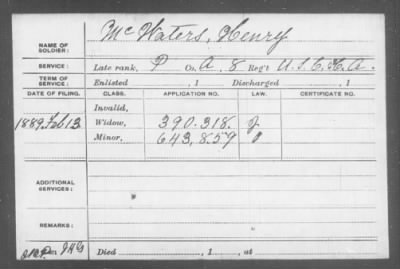 NAME OF SOLDIER: McWaters, Henry
SERVICE: Late rank, P Co. A, 8 Reg't U.S.C.H.A.
TERM OF SERVICE: Enlisted , 1 Discharged , 1
DATE OF FILING. CLASS. APPLICATION NO. LAW. CERTIFICATE NO.
Invalid,
1889 Feb 13 Widow, 390.318.
Minor, 643,859
ADDITIONAL SERVICES:
REMARKS:
Died , 1 , at